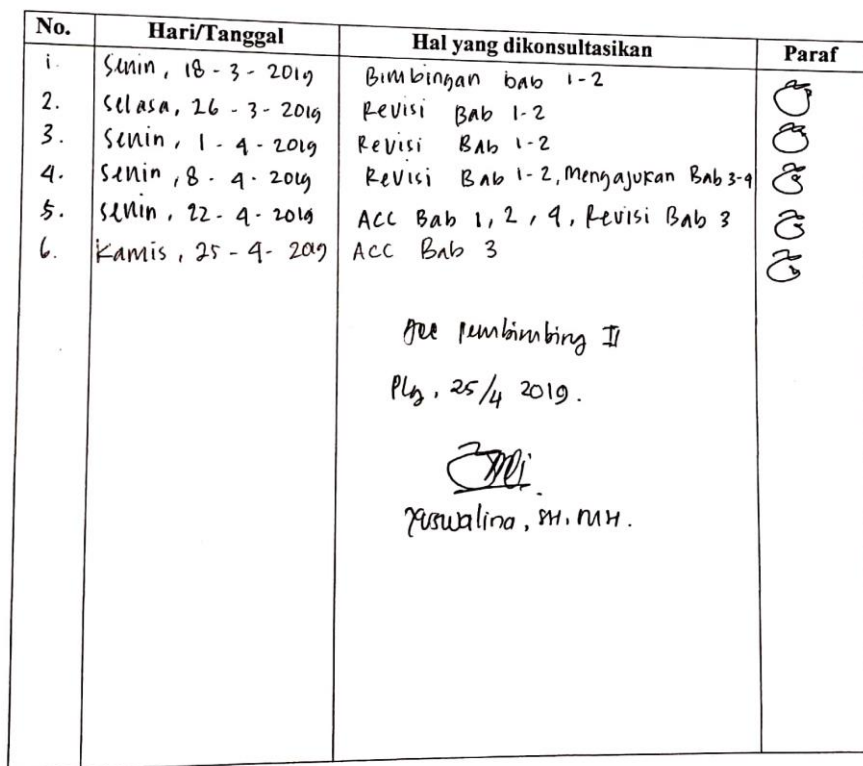 No. Hari/Tanggal Hal yang dikonsultasikan Paraf
1. Senin, 18 - 3 - 2019 Bimbingan bab 1-2
2. Selasa, 26 - 3 - 2019 Revisi Bab 1-2
3. Senin, 1 - 4 - 2019 Revisi Bab 1-2
4. Senin, 8 - 4 - 2019 Revisi Bab 1-2, Mengajukan Bab 3-4
5. Senin, 22 - 4 - 2019 ACC Bab 1, 2, 4, Revisi Bab 3
6. Kamis, 25 - 4 - 2019 ACC Bab 3
Acc pembimbing II
Plg, 25/4 2019.
Yuswalina, SH, MH.